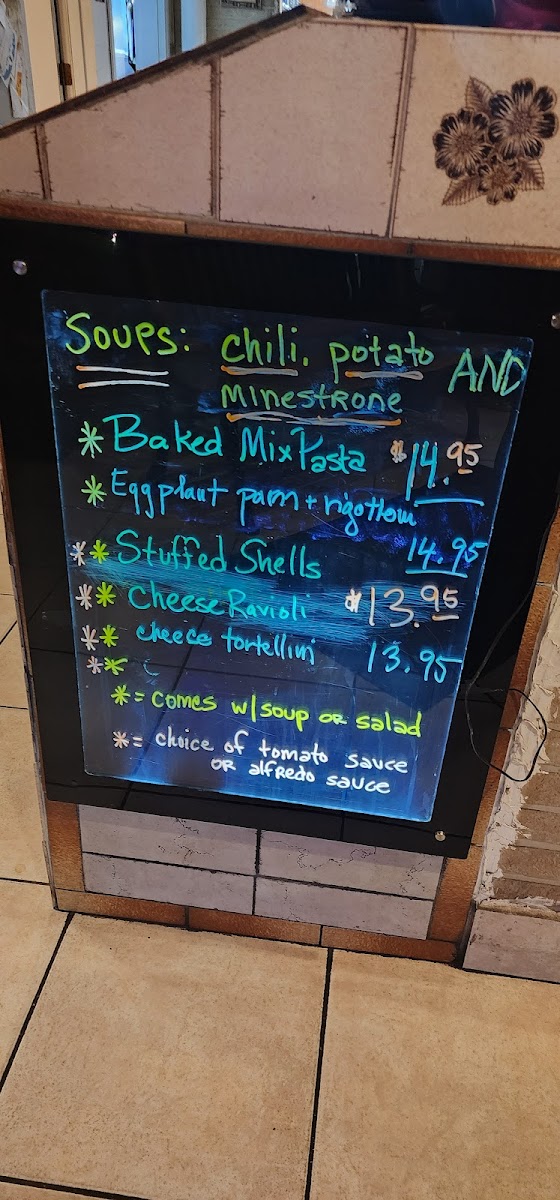 Soups: chili. potato AND
MINESTRONE
*Baked Mix Pasta $14.95
*Eggplant parm + rigottoni
**Stuffed Shells 14.95
**Cheese Ravioli $13.95
**cheece tortellini 13.95
**
*= comes w/soup or salad
*= choice of tomato sauce
or alfredo sauce